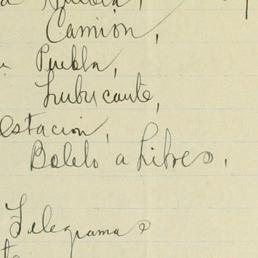 Camión,
Puebla,
Lubricante,
Estación,
Boleto a Libres.
Telegramas